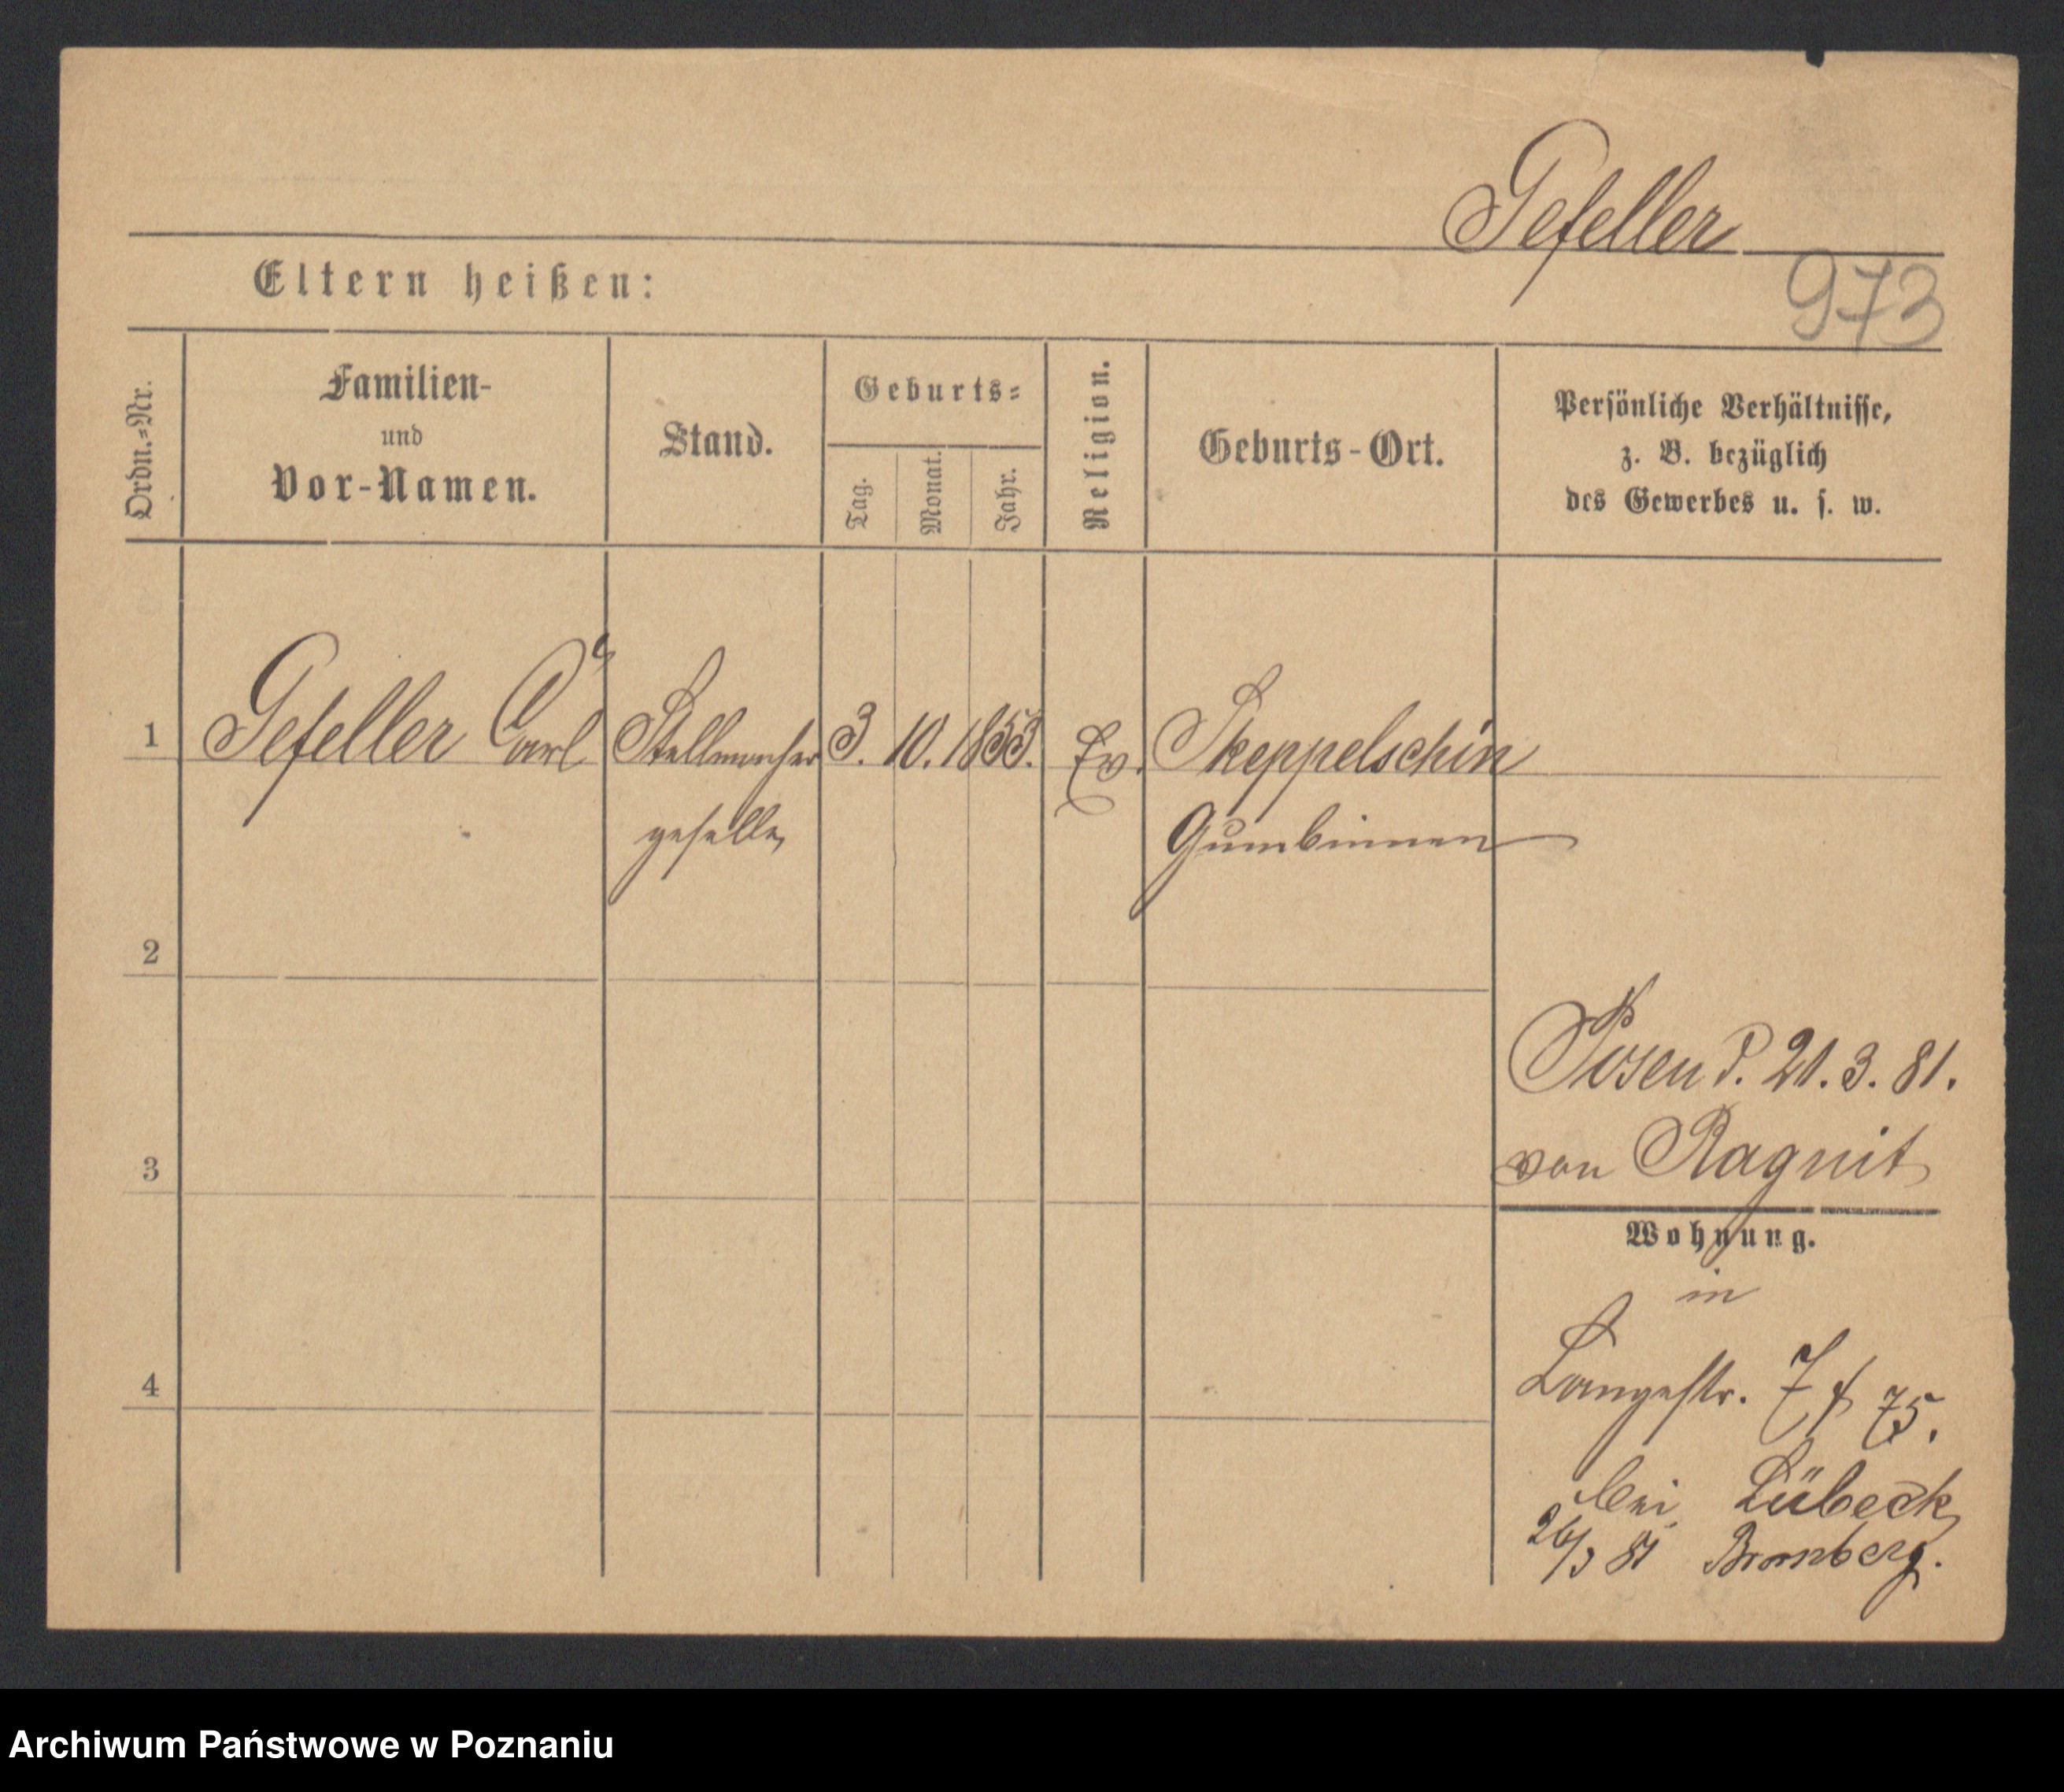 Gefeller
973
Eltern heißen:
Ordn.-Nr.
Familien-
und
Vor-Namen.
Stand.
Geburts-
Tag.
Monat.
Jahr.
Religion.
Geburts-Ort.
Persönliche Verhältnisse,
z. B. bezüglich
des Gewerbes u. s. w.
1 Gefeller Carl Stellmacher 3. 10. 1853. Ev. Skeppelschin
geselle Gumbinnen
2
Posen P. 21.3.81.
3 von Ragnit
Wohnung.
in
4 Langestr. 7 75.
bei Lübeck
26/3 81 Bromberg.
Archiwum Państwowe w Poznaniu